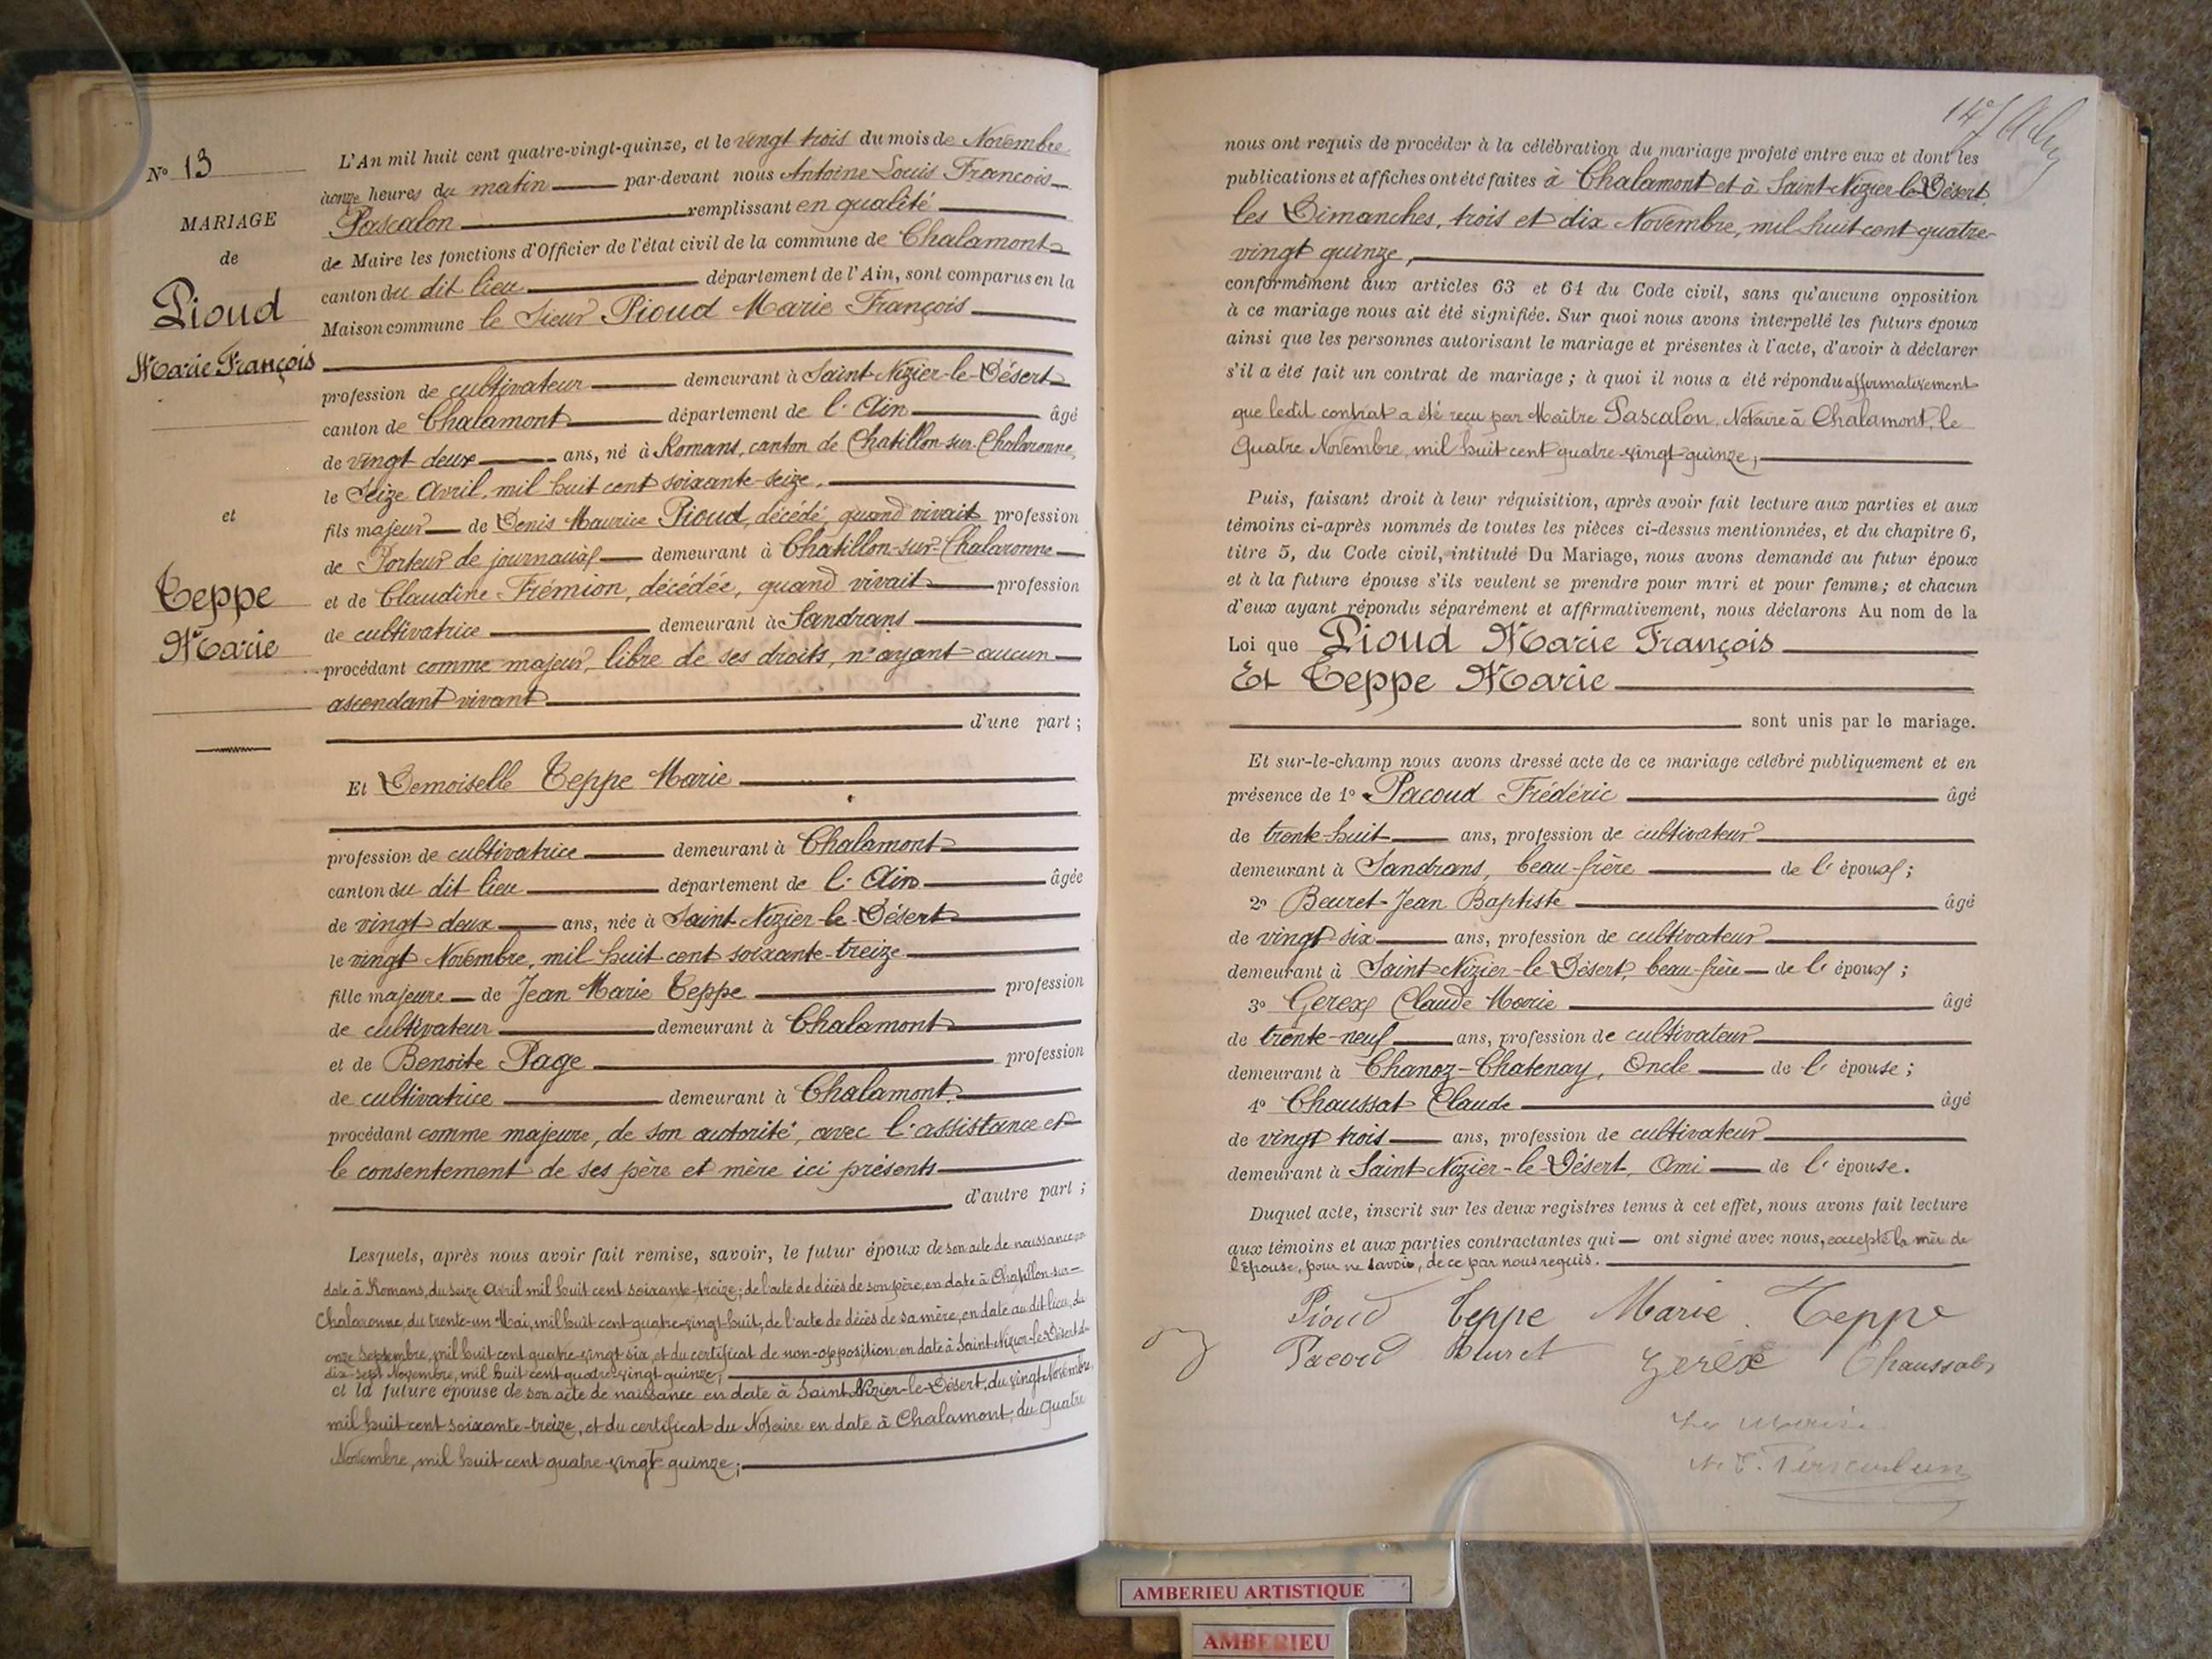 N° 13
MARIAGE
de
Pioud
Marie François
et
Teppe
Marie
L'An mil huit cent quatre-vingt-quinze, et le vingt trois du mois de Novembre
à onze heures du matin par-devant nous Antoine Louis François
Pascalon remplissant en qualité
de Maire les fonctions d'Officier de l'état civil de la commune de Chalamont
canton du dit lieu département de l'Ain, sont comparus en la
Maison commune le Sieur Pioud Marie François
profession de cultivateur demeurant à Saint Nizier-le-Désert
canton de Chalamont département de l'Ain âgé
de vingt deux ans, né à Romans, canton de Chatillon-sur-Chalaronne,
le Seize Avril, mil huit cent soixante-seize,
fils majeur de Denis Maurice Pioud, décédé, quand vivait profession
de Porteur de journaux demeurant à Chatillon-sur-Chalaronne
et de Claudine Frémion, décédée, quand vivait profession
de cultivatrice demeurant à Sandrans
procédant comme majeur, libre de ses droits, n'ayant aucun
ascendant vivant
d'une part ;
Et Demoiselle Teppe Marie
profession de cultivatrice demeurant à Chalamont
canton du dit lieu département de l'Ain âgée
de vingt deux ans, née à Saint Nizier-le-Désert
le vingt Novembre, mil huit cent soixante-treize
fille majeure de Jean Marie Teppe profession
de cultivateur demeurant à Chalamont
et de Benoite Page profession
de cultivatrice demeurant à Chalamont
procédant comme majeure, de son autorité, avec l'assistance et
le consentement de ses père et mère ici présents
d'autre part ;
Lesquels, après nous avoir fait remise, savoir, le futur époux de son acte de naissance en
date à Romans, du seize Avril mil huit cent soixante-treize; de l'acte de décès de son père, en date à Chatillon-sur-
Chalaronne, du trente-un Mai, mil huit cent quatre-vingt-huit, de l'acte de décès de sa mère, en date au dit lieu, du
onze Septembre, mil huit cent quatre-vingt six, et du certificat de non-opposition en date à Saint-Nizier-le-Désert du
dix-sept Novembre, mil huit cent quatre-vingt quinze;
et la future épouse de son acte de naissance en date à Saint Nizier-le-Désert, du vingt Novembre,
mil huit cent soixante-treize, et du certificat du Notaire en date à Chalamont, du quatre
Novembre, mil huit cent quatre-vingt quinze;
nous ont requis de procéder à la célébration du mariage projeté entre eux et dont les
publications et affiches ont été faites à Chalamont et à Saint-Nizier-le-Désert,
les Dimanches, trois et dix Novembre, mil huit cent quatre-
vingt quinze,
conformément aux articles 63 et 64 du Code civil, sans qu'aucune opposition
à ce mariage nous ait été signifiée. Sur quoi nous avons interpellé les futurs époux
ainsi que les personnes autorisant le mariage et présentes à l'acte, d'avoir à déclarer
s'il a été fait un contrat de mariage ; à quoi il nous a été répondu affirmativement
que ledit contrat a été reçu par Maître Pascalon, Notaire à Chalamont, le
Quatre Novembre, mil huit cent quatre-vingt-quinze,
Puis, faisant droit à leur réquisition, après avoir fait lecture aux parties et aux
témoins ci-après nommés de toutes les pièces ci-dessus mentionnées, et du chapitre 6,
titre 5, du Code civil, intitulé Du Mariage, nous avons demandé au futur époux
et à la future épouse s'ils veulent se prendre pour mari et pour femme; et chacun
d'eux ayant répondu séparément et affirmativement, nous déclarons Au nom de la
Loi que Pioud Marie François
Et Teppe Marie
sont unis par le mariage.
Et sur-le-champ nous avons dressé acte de ce mariage célébré publiquement et en
présence de 1° Pacoud Frédéric âgé
de trente-huit ans, profession de cultivateur
demeurant à Sandrans, beau-frère de l'époux ;
2° Beuret Jean Baptiste âgé
de vingt-six ans, profession de cultivateur
demeurant à Saint Nizier-le-Désert, beau-frère de l'époux ;
3° Gerex Claude Marie âgé
de trente-neuf ans, profession de cultivateur
demeurant à Chanoz-Chatenay, Oncle de l'épouse ;
4° Chaussat Claude âgé
de vingt trois ans, profession de cultivateur
demeurant à Saint Nizier-le-Désert, Ami de l'épouse.
Duquel acte, inscrit sur les deux registres tenus à cet effet, nous avons fait lecture
aux témoins et aux parties contractantes qui ont signé avec nous, excepté la mère de
l'Epouse, pour ne savoir, de ce par nous requis.
Pioud Teppe Marie Teppe
Pacoud Beuret Gerex Chaussat
Le Maire
AMBERIEU ARTISTIQUE
AMBERIEU